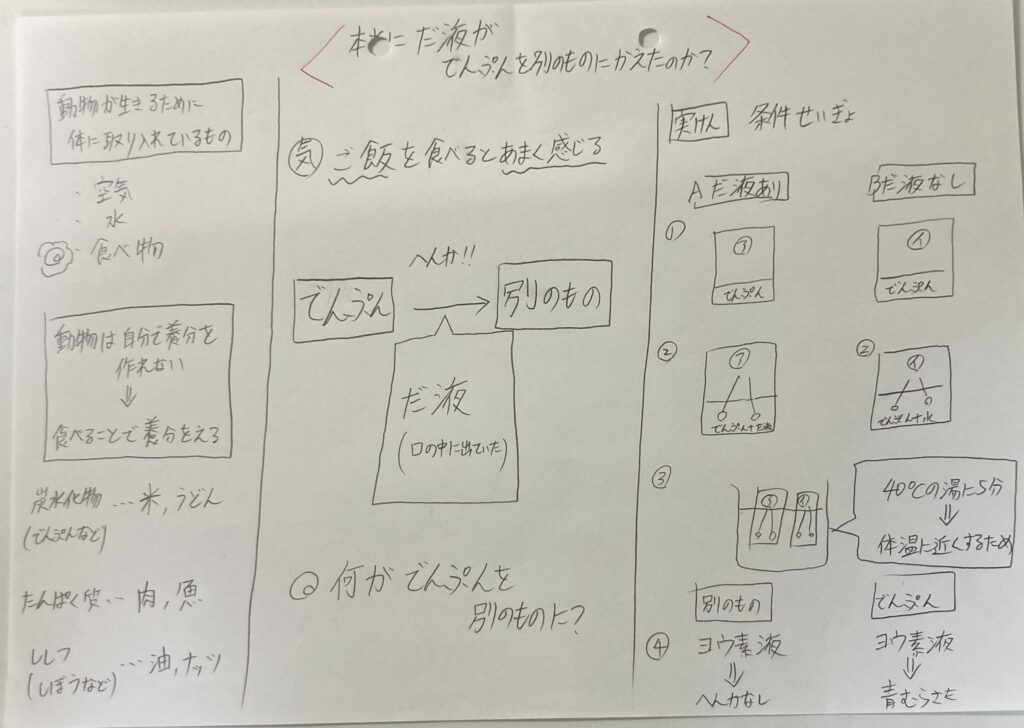 本当に だ液が
でんぷんを別のものにかえたのか?
動物が生きるために
体に取り入れているもの
・空気
・水
・食べ物
動物は自分で養分を
作れない
⇓
食べることで養分をえる
炭水化物 … 米, うどん
(でんぷんなど)
たんぱく質 … 肉, 魚
… 油, ナッツ
(しぼうなど)
気 ご飯を食べるとあまく感じる
へんか!!
でんぷん → 別のもの
だ液
(口の中に出ていた)
◎ 何がでんぷんを
別のものに?
実けん 条件せいぎょ
A だ液あり
B だ液なし
①
でんぷん
イ
でんぷん
②
ア
でんぷん+だ液
②
イ
でんぷん+水
③
40℃の湯に5分
⇓
体温に近くするため
別のもの
でんぷん
④ ヨウ素液
⇓
へんかなし
ヨウ素液
⇓
青むらさき